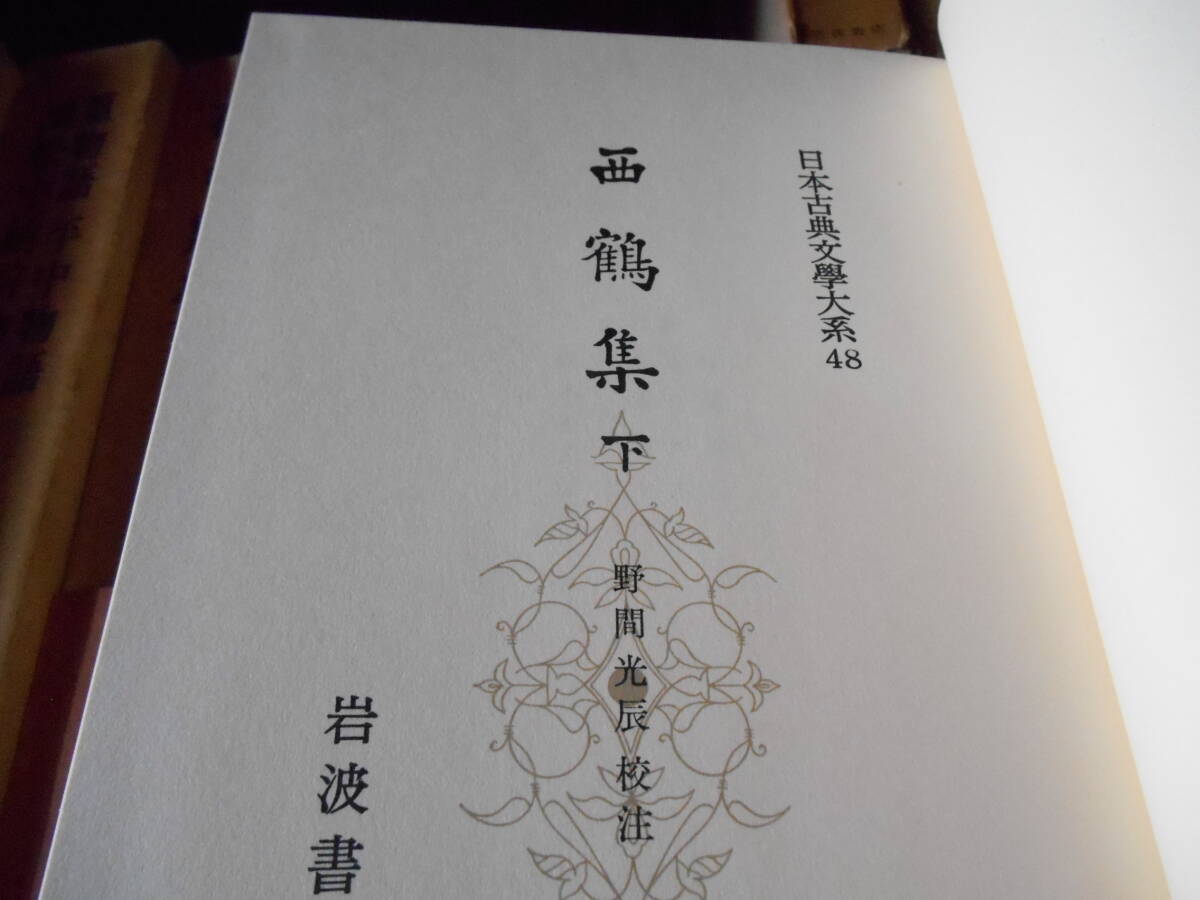 日本古典文學大系48
西鶴集下
野間光辰校注
岩波書